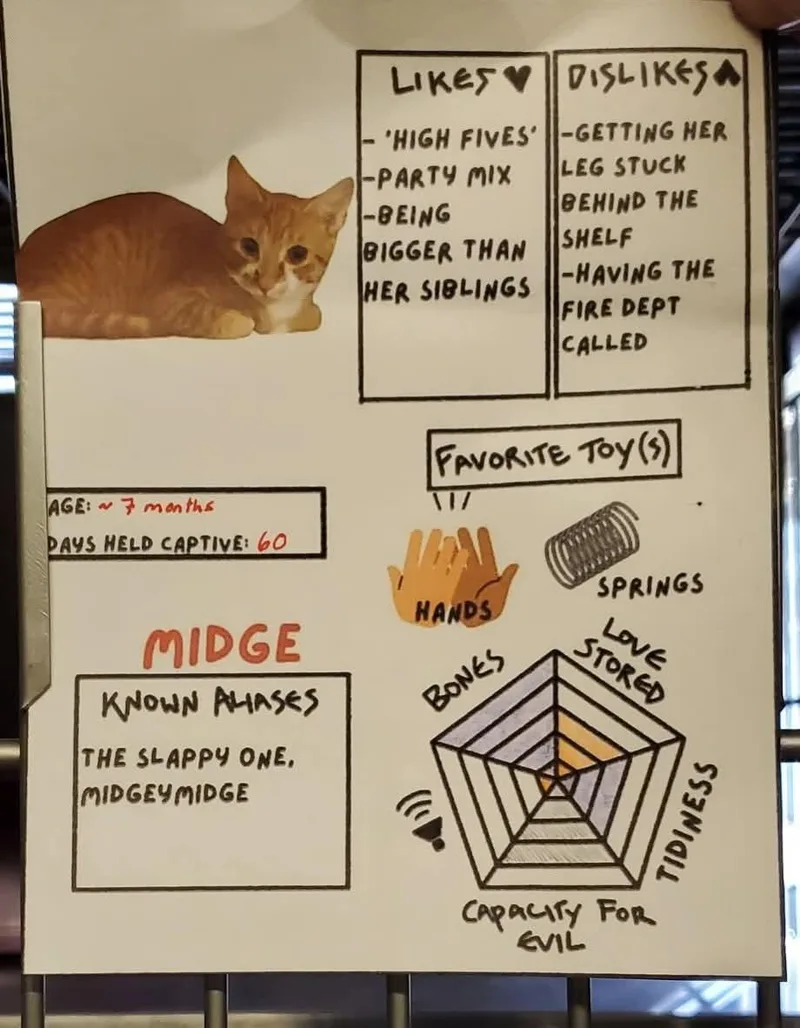 LIKES ♥
- 'HIGH FIVES'
-PARTY MIX
-BEING
BIGGER THAN
HER SIBLINGS
DISLIKES
-GETTING HER
LEG STUCK
BEHIND THE
SHELF
-HAVING THE
FIRE DEPT
CALLED
FAVORITE TOY(S)
HANDS
SPRINGS
AGE: ~ 7 months
DAYS HELD CAPTIVE: 60
MIDGE
KNOWN ALIASES
THE SLAPPY ONE,
MIDGEYMIDGE
BONES
LOVE
STORED
TIDINESS
CAPACITY FOR
EVIL